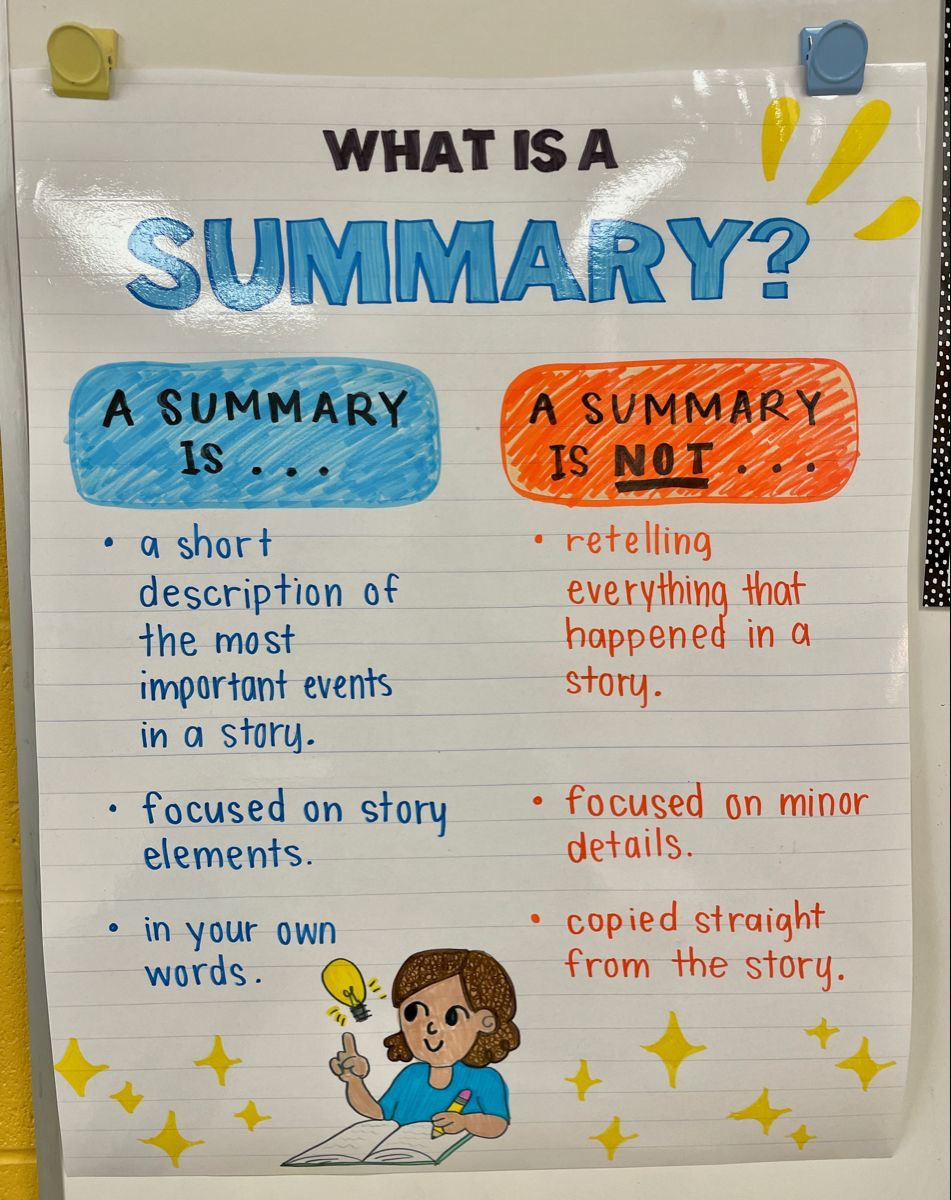 WHAT IS A
SUMMARY?
A SUMMARY
IS . . .
• a short
description of
the most
important events
in a story.
• focused on story
elements.
• in your own
words.
A SUMMARY
IS NOT . . .
• retelling
everything that
happened in a
story.
• focused on minor
details.
• copied straight
from the story.